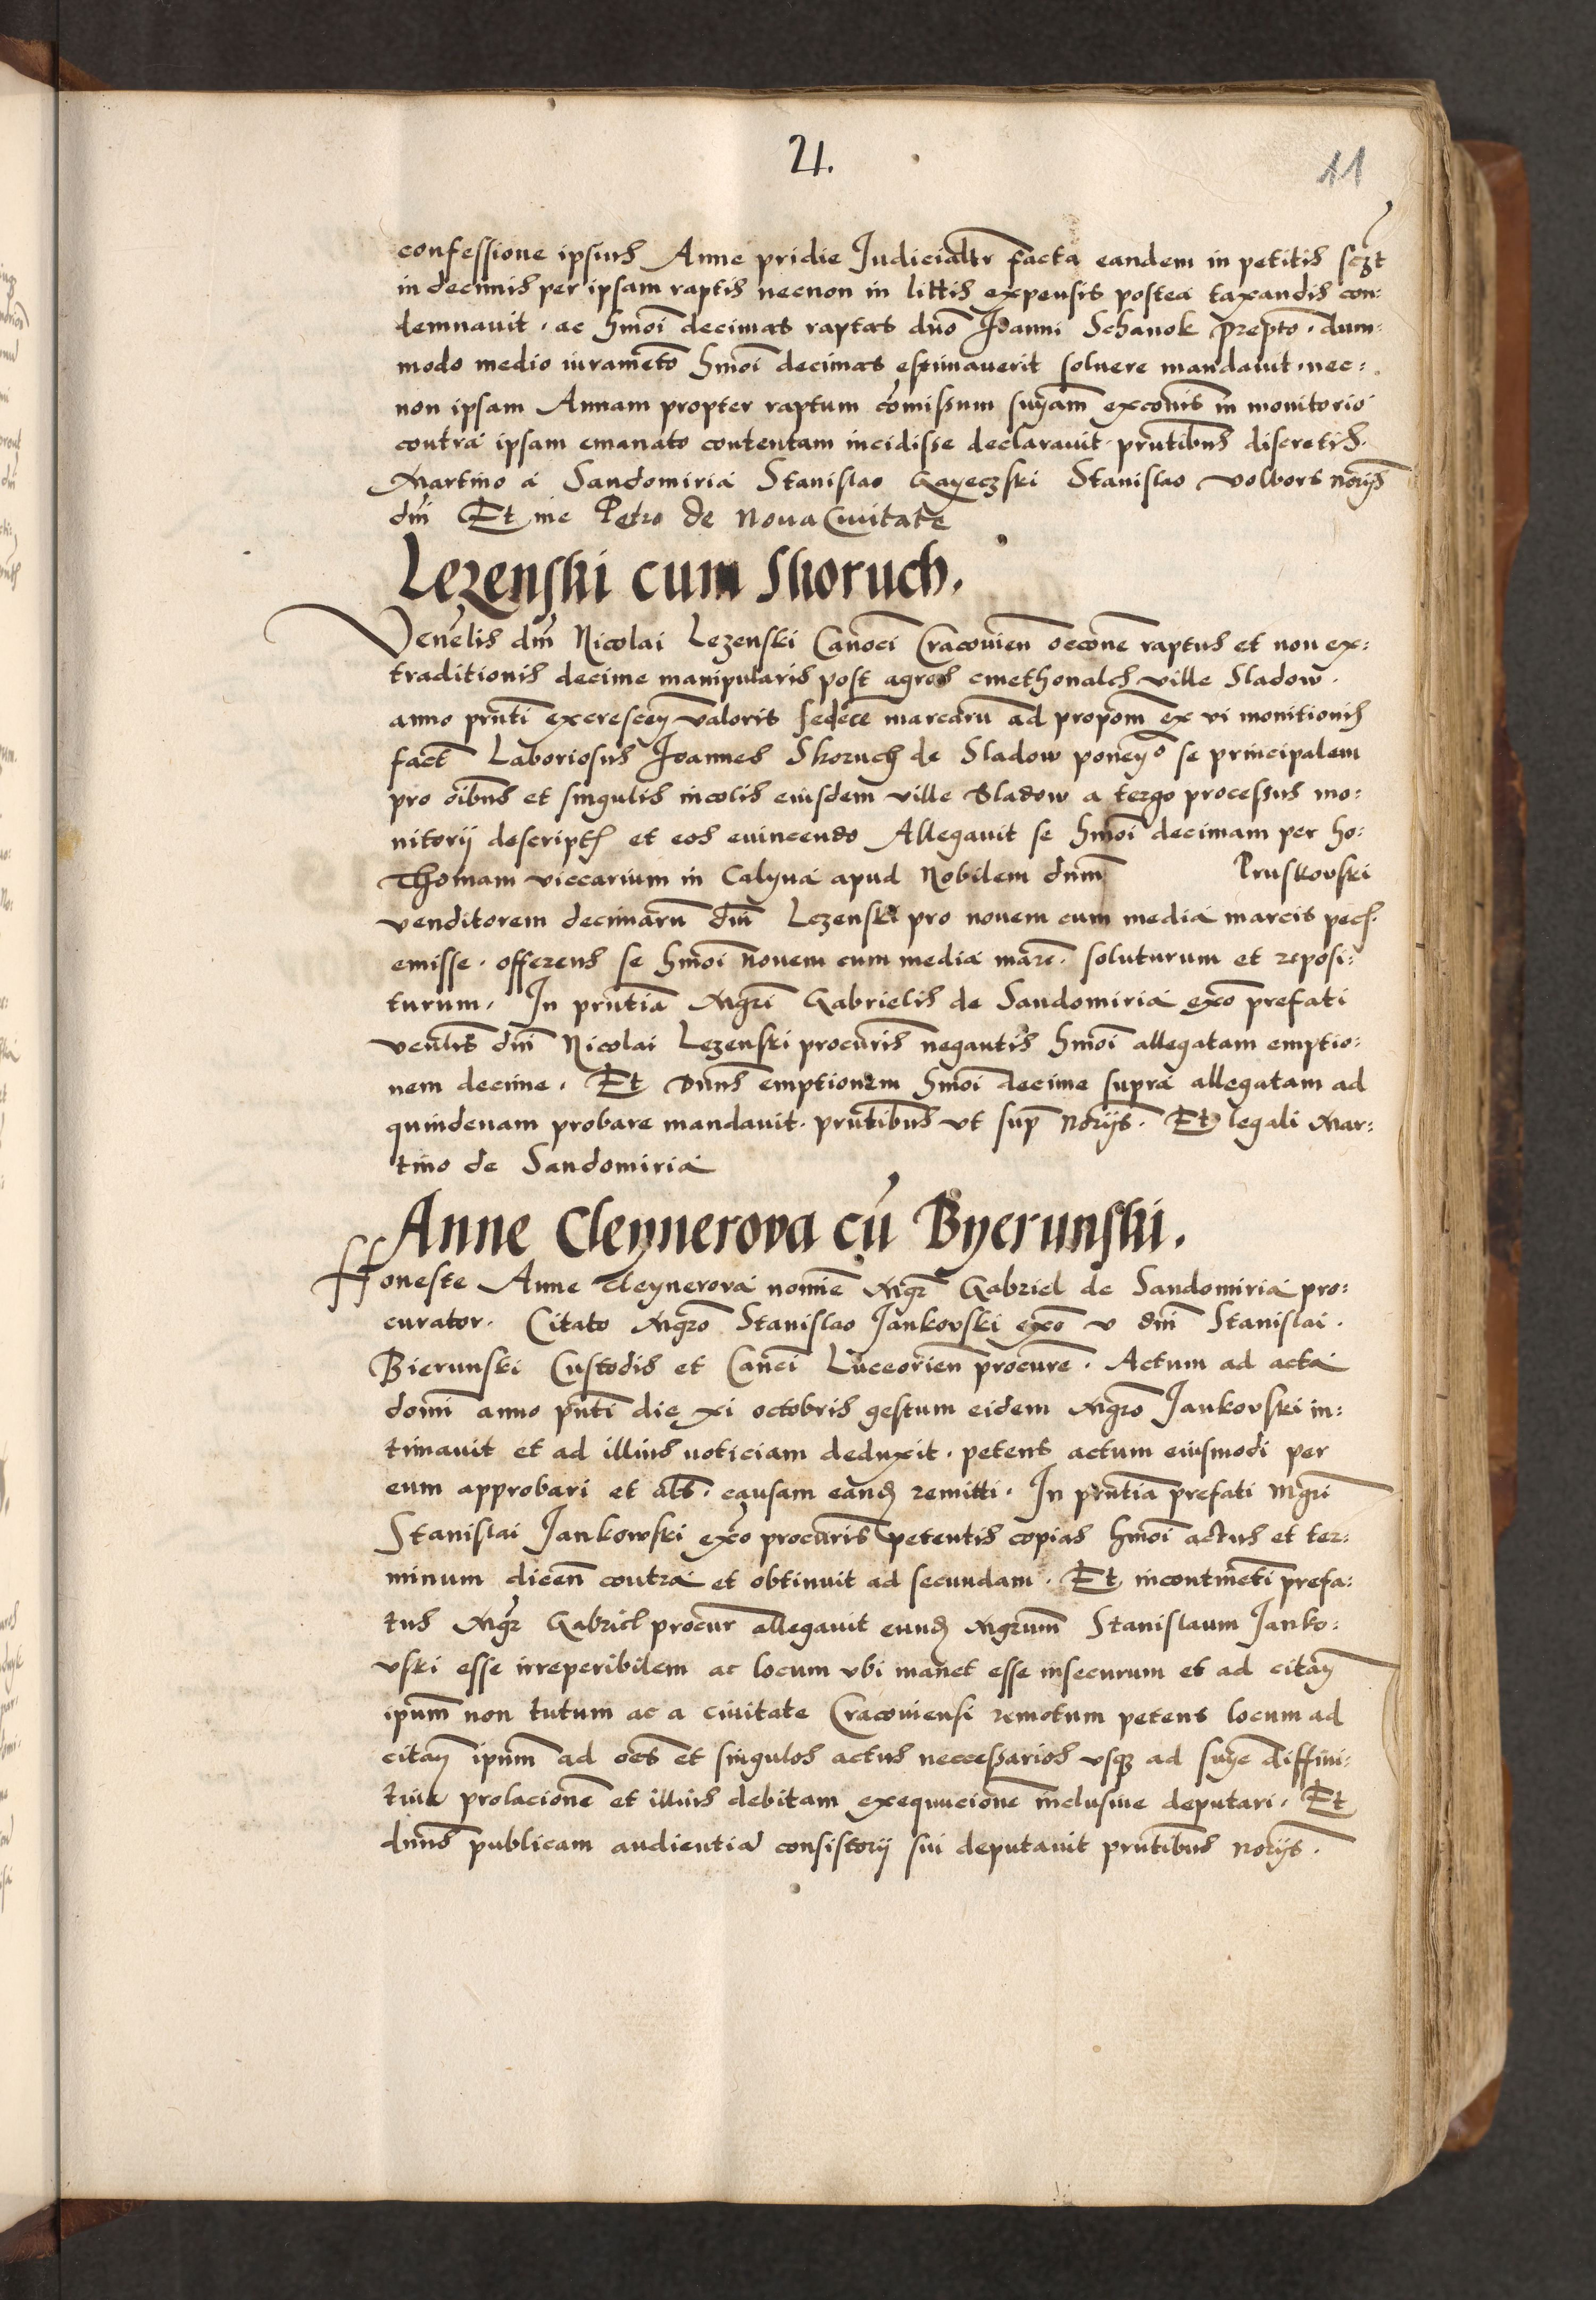 21.
11
confessione ipsius Anne pridie Judicialr facta eandem in petitis sczt
in decimis per ipsam raptis necnon in littis expensis postea taxandis con:
demnavit. ac hmoi decimas raptas dno Joanni Schanok prepto. dum:
modo medio iurameto hmoi decimas estimaverit solvere mandavit. nec:
non ipsam Annam propter raptum comissum snyam exconis in monitorio
contra ipsam emanato contentam incidisse declaravit. prntibus discretis.
Martino a Sandomiria Stanislao Gayeczski Stanislao Volbors norijs
dni Et me Petro de Nova Civitate
Lezenski cum Skoruch.
Venelis dni Nicolai Lezenski Canoci Cracovien occone raptus et non ex:
traditionis decime manipularis post agros cmethonales ville Sladow.
anno prnti excrescen valoris sedece marcaru ad propom ex vi monitionis
fact Laboriosus Joannes Skoruch de Sladow ponens se principalem
pro oibus et singulis incolis eiusdem ville Sladow a tergo processus mo:
nitorij descriptis et eos evincendo Allegavit se hmoi decimam per ho:
Thomam viccarium in Calyna apud Nobilem dnm Pruskovski
venditorem decimaru dni Lezenski pro novem cum media marcis pecs.
emisse. offerens se hmoi novem cum media marc. soluturum et reposi:
turum. In prntia Mgri Gabrielis de Sandomiria exo prefati
venlis dni Nicolai Lezenski procuris negantis hmoi allegatam emptio:
nem decime. Et Dnus emptionem hmoi decime supra allegatam ad
quindenam probare mandavit. prntibus ut sup norijs. Et legali Mar:
tino de Sandomiria
Anne Cleynerova cu Byerunski.
Honeste Anne Cleynerova nomie Mgr Gabriel de Sandomiria pro:
curator. Citato Mgro Stanislao Jankovski exo v dni Stanislai.
Bierunski Custodis et Canci Luceorien procure. Actum ad acta
domi anno pnti die xi octobris gestum eidem Mgro Jankovski in:
timavit et ad illius noticiam deduxit. petens actum eiusmodi per
eum approbari et als. causam eand remitti. In prntia prefati Mgri
Stanislai Jankowski exo procuris petentis copias hmoi actus et ter:
minum dicen contra et obtinuit ad secundam. Et incontineti prefa:
tus Mgr Gabriel procur allegavit eund Mgrum Stanislaum Janko:
vski esse irreperibilem ac locum ubi manet esse insecurum et ad citan
ipum non tutum ac a civitate Cracoviensi remotum petens locum ad
citan ipum ad oes et singulos actus neccessarios usq ad snye diffini:
tive prolacione et illius debitam exequucione inclusive deputari. Et
dnus publicam audientia consistorij sui deputavit prntibus norijs.